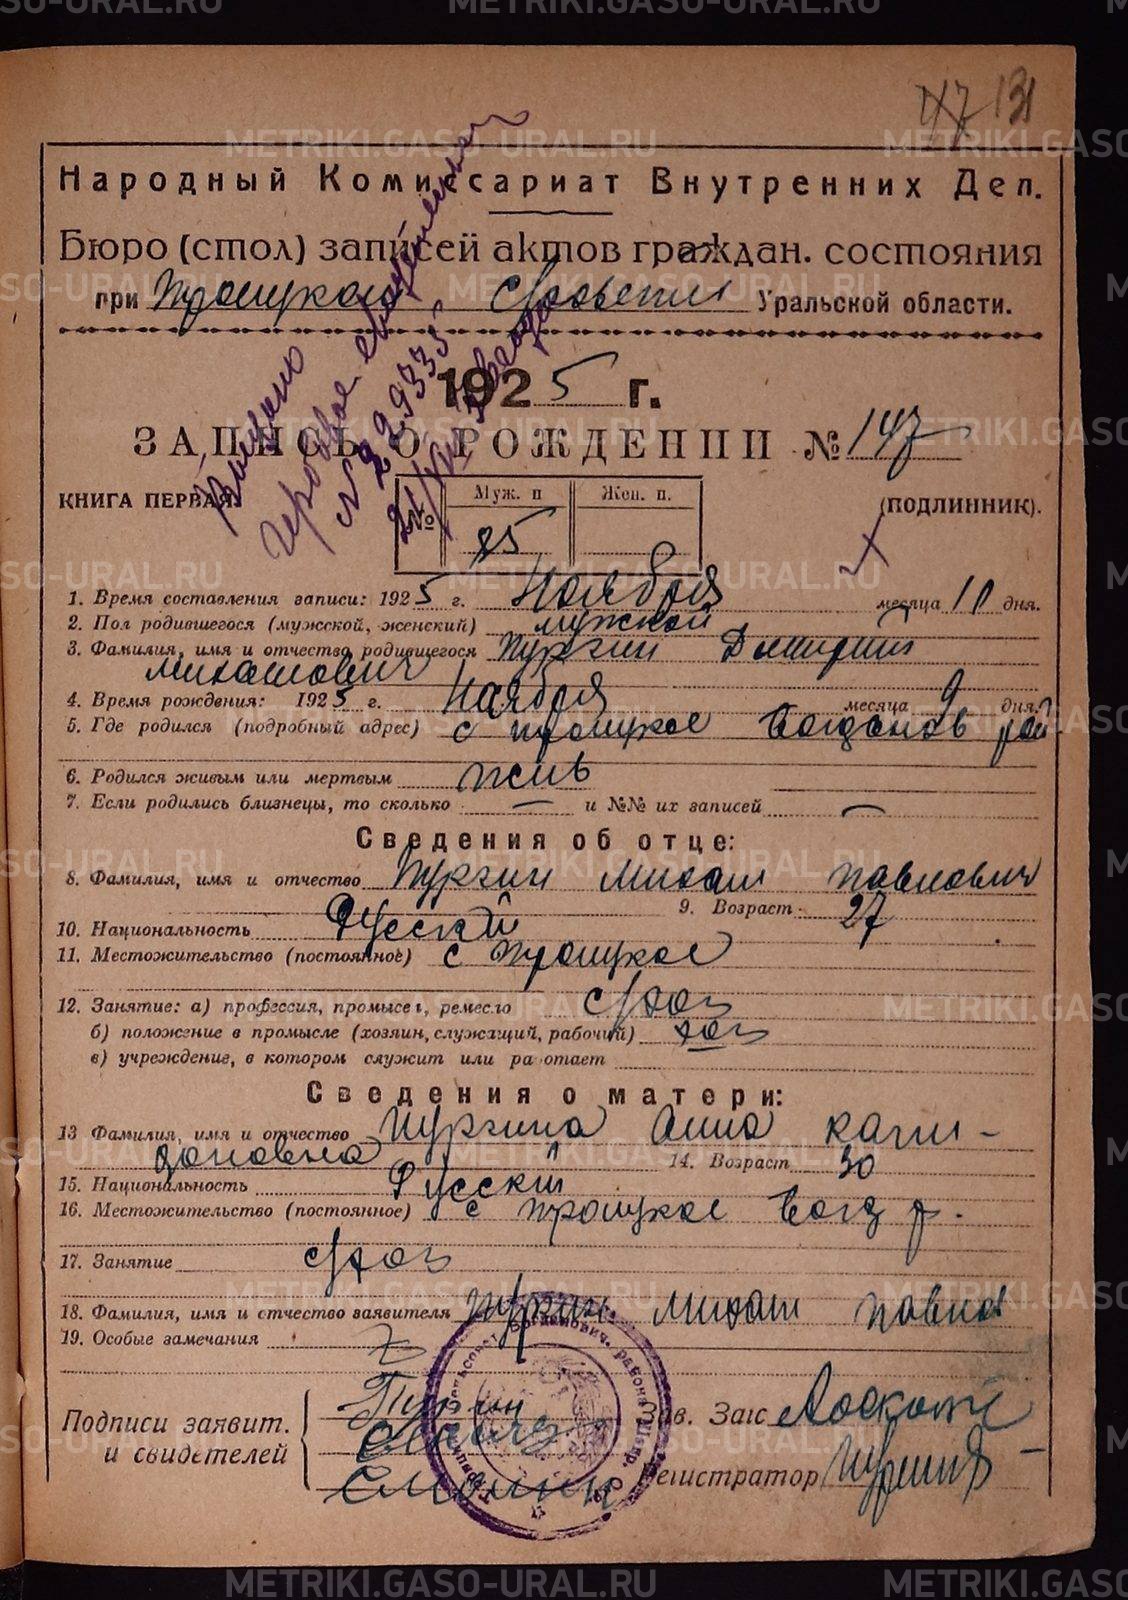 47 131
Народный Комиссариат Внутренних Дел.
Бюро (стол) записей актов граждан. состояния
при Троицком с/совете Уральской области.
1925 г.
ЗАПИСЬ О РОЖДЕНИИ № 147
Выдано
№ 229335
КНИГА ПЕРВАЯ.
(ПОДЛИННИК).
№
Муж. п Жен. п.
85
1. Время составления записи: 1925 г. Ноября месяца 10 дня.
2. Пол родившегося (мужской, женский) мужской
3. Фамилия, имя и отчество родившегося Пургин Дмитрий
Михайлович
4. Время рождения: 1925 г. Ноября месяца 9 дня.
5. Где родился (подробный адрес) с Троицкое Богданов рай
6. Родился живым или мертвым жив
7. Если родились близнецы, то сколько — и №№ их записей —
Сведения об отце:
8. Фамилия, имя и отчество Пургин Михаил Павлович
9. Возраст 27
10. Национальность Русский
11. Местожительство (постоянное) с Троицкое
12. Занятие: а) профессия, промысел, ремесло с/хоз
б) положение в промысле (хозяин, служащий, рабочий) хоз
в) учреждение, в котором служит или работает
Сведения о матери:
13 Фамилия, имя и отчество Пургина Анна
14. Возраст 30
15. Национальность Русский
16. Местожительство (постоянное) с Троицкое Богд р.
17. Занятие с/хоз
18. Фамилия, имя и отчество заявителя Пургин Михаил Павлов
19. Особые замечания
Подписи заявит.
и свидетелей
Пургин
Смолин
Зав. Загс
Регистратор
METRIKI.GASO-URAL.RU